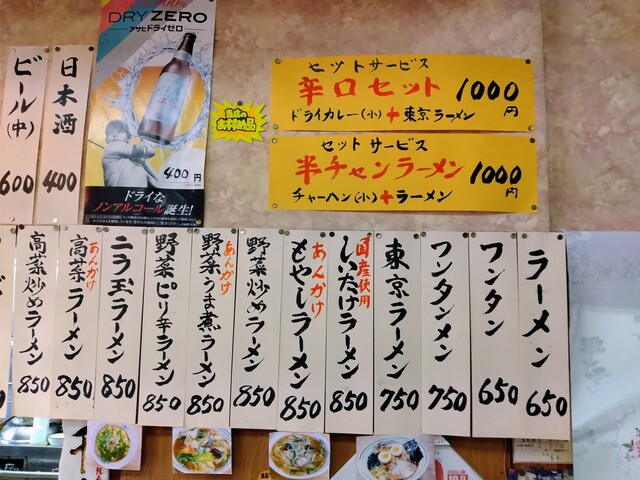 日本酒
400
ビール(中)
600
DRY ZERO
アサヒドライゼロ
400円
ドライな
ノンアルコール誕生!
当店の
おすすめ品
セットサービス
辛口セット 1000円
ドライカレー(小)+東京ラーメン
セットサービス
半チャンラーメン 1000円
チャーハン(小)+ラーメン
ラーメン
650
ワンタン
650
ワンタンメン
750
東京ラーメン
750
国産使用
しいたけラーメン
850
あんかけ
もやしラーメン
850
野菜炒めラーメン
850
あんかけ
野菜うま煮ラーメン
850
野菜ピリ辛ラーメン
850
ニラ玉ラーメン
850
あんかけ
高菜ラーメン
850
高菜炒めラーメン
850